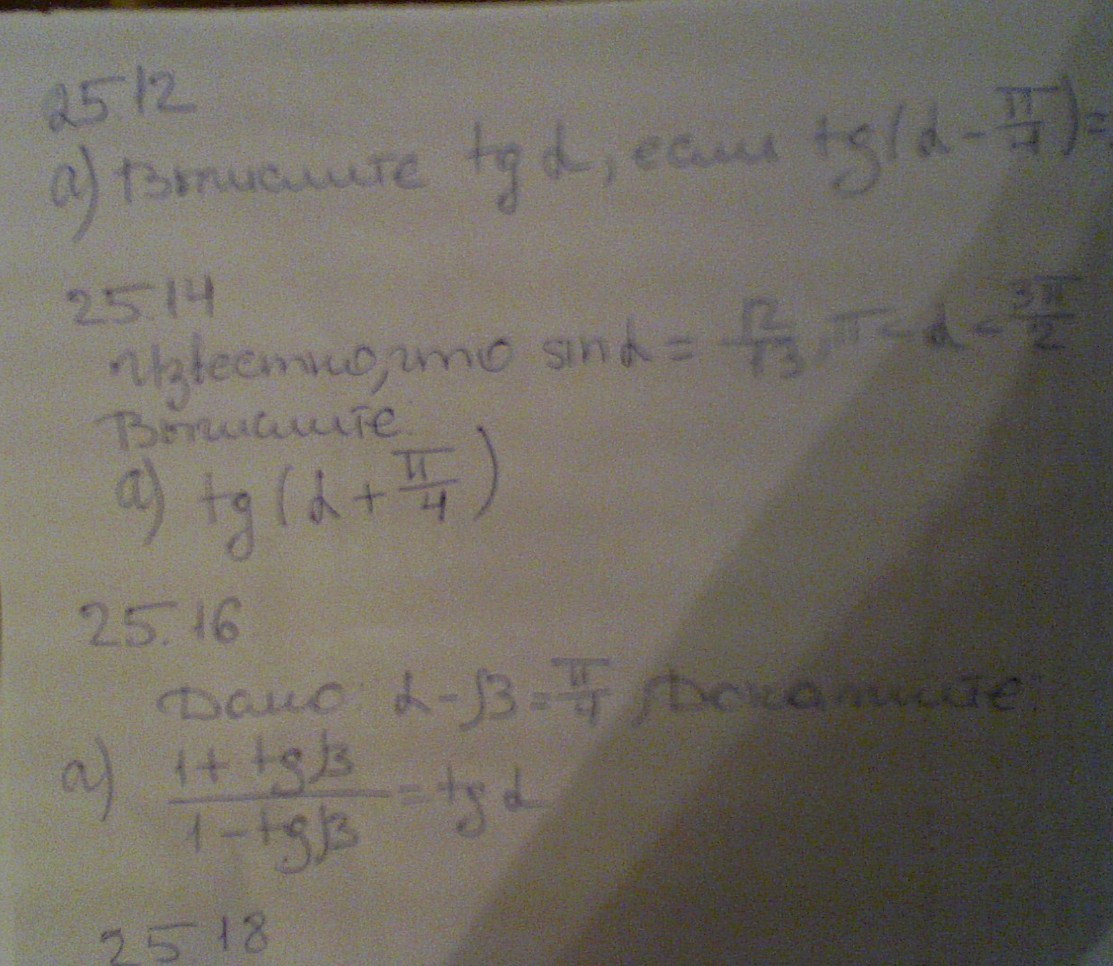 25.12
а) Вычислите tg α, если tg(α - π/4) =
25.14
Известно, что sin α = 12/13, π < α < 3π/2
Вычислите:
а) tg(α + π/4)
25.16
Дано: α - β = π/4, Докажите:
а) (1 + tgβ)/(1 - tgβ) = tg α
25.18